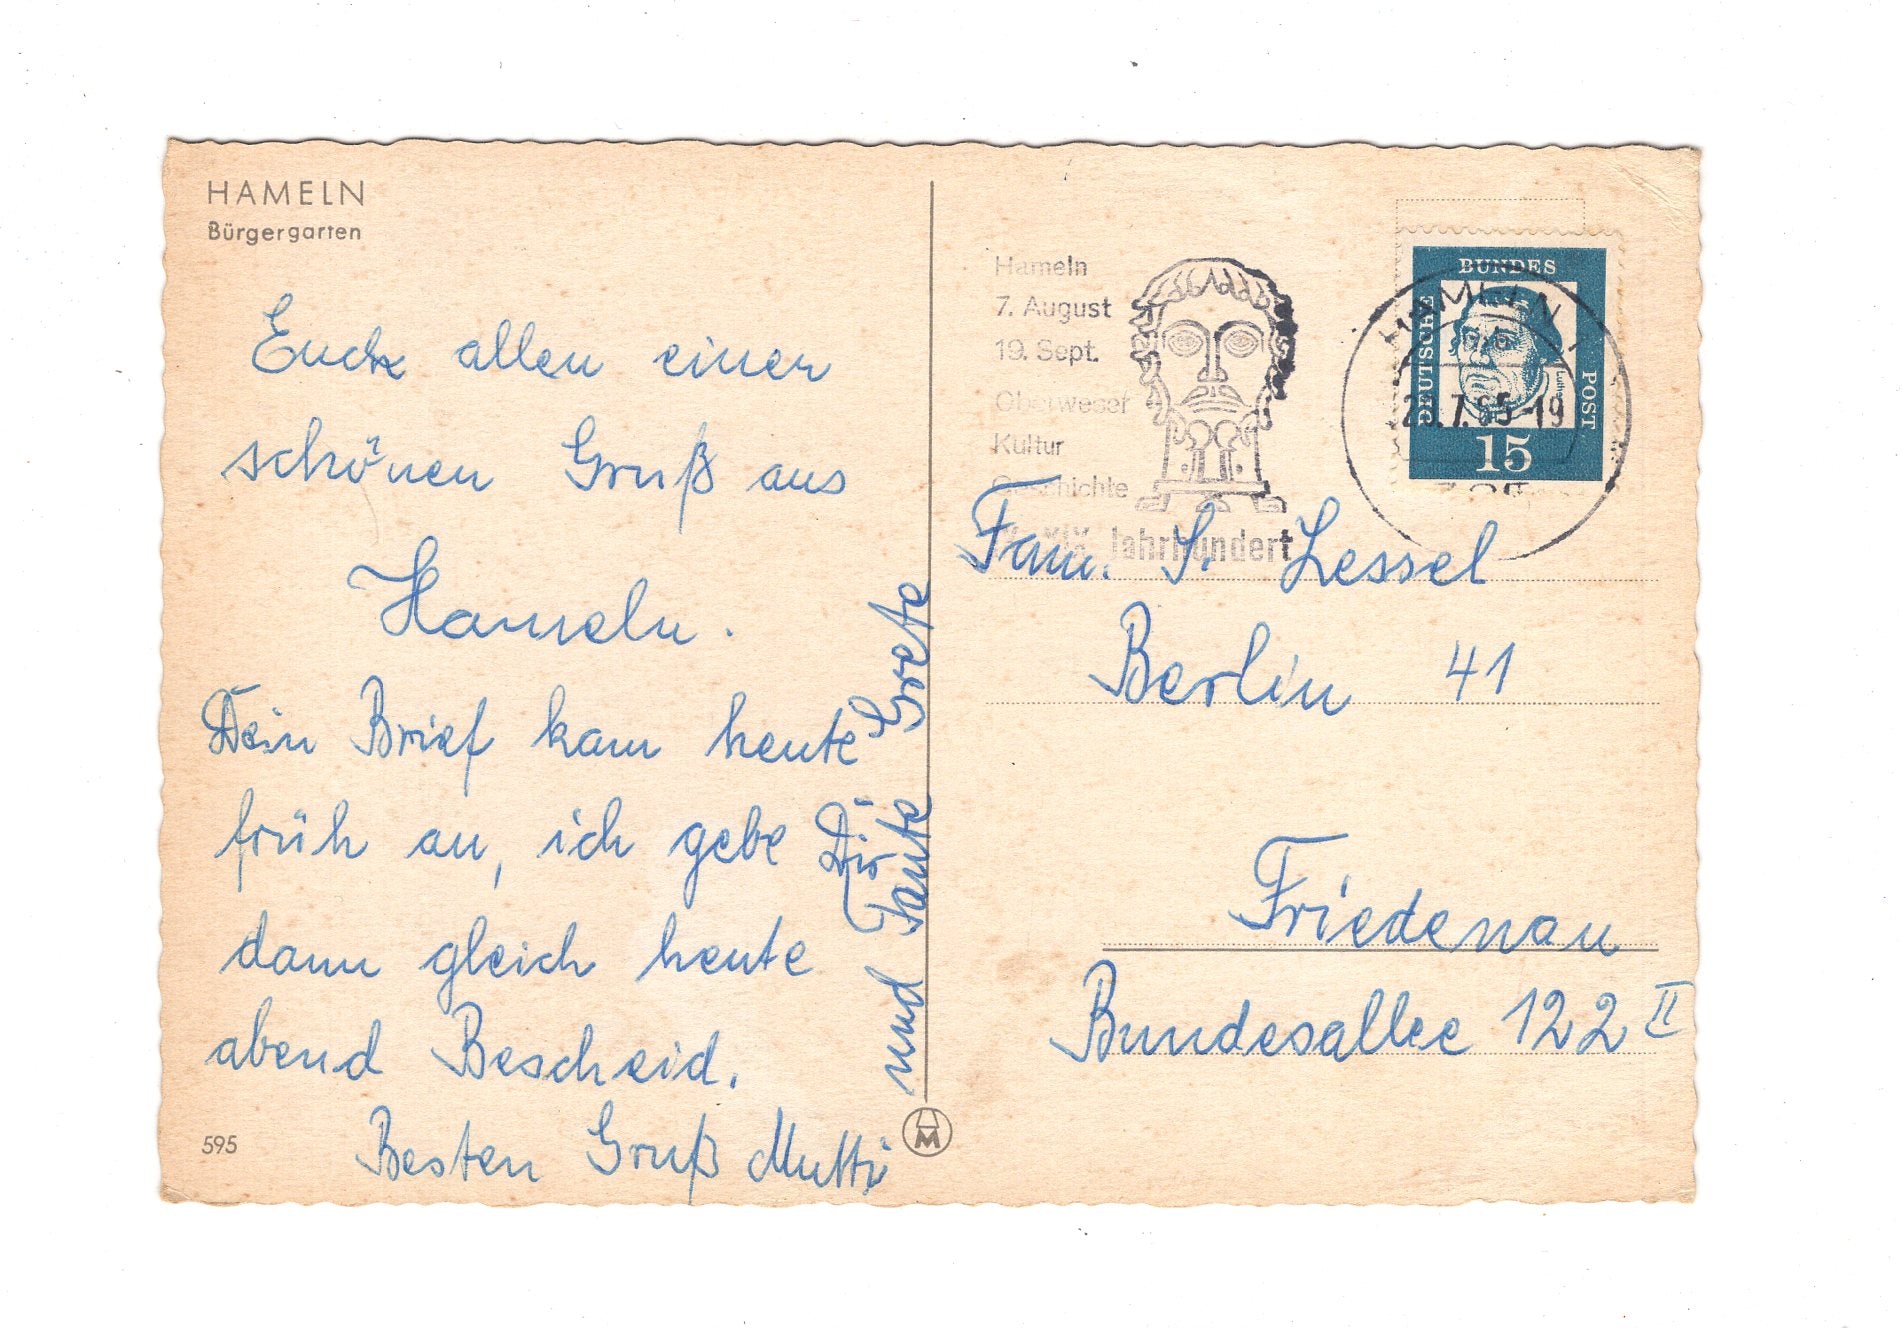 HAMELN
Bürgergarten
Euch allen einen
schönen Gruß aus
Hameln.
Dein Brief kam heute
früh an, ich gebe Dir
dann gleich heute
abend Bescheid.
Besten Gruß Mutti
und Tante Grete
595
Hameln
7. August
19. Sept.
Oberweser
Kultur
Geschichte
XIX. Jahrhundert
BUNDES
DEUTSCHE
POST
15
HAMELN 1
.7.65-19
Fam. S. Lessel
Berlin 41
Friedenau
Bundesallee 122 II